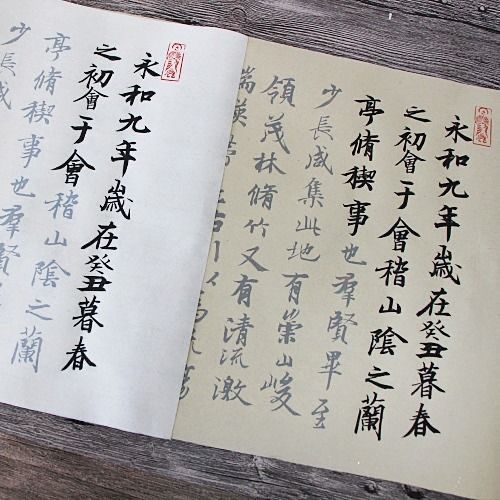 永和九年歲在癸丑暮春
之初會于會稽山陰之蘭
亭脩稧事也羣賢畢至
少長咸集此地有崇山峻
領茂林脩竹又有清流激
湍暎帶左右引以為
永和九年歲在癸丑暮春
之初會于會稽山陰之蘭
亭脩稧事也羣賢
少長咸